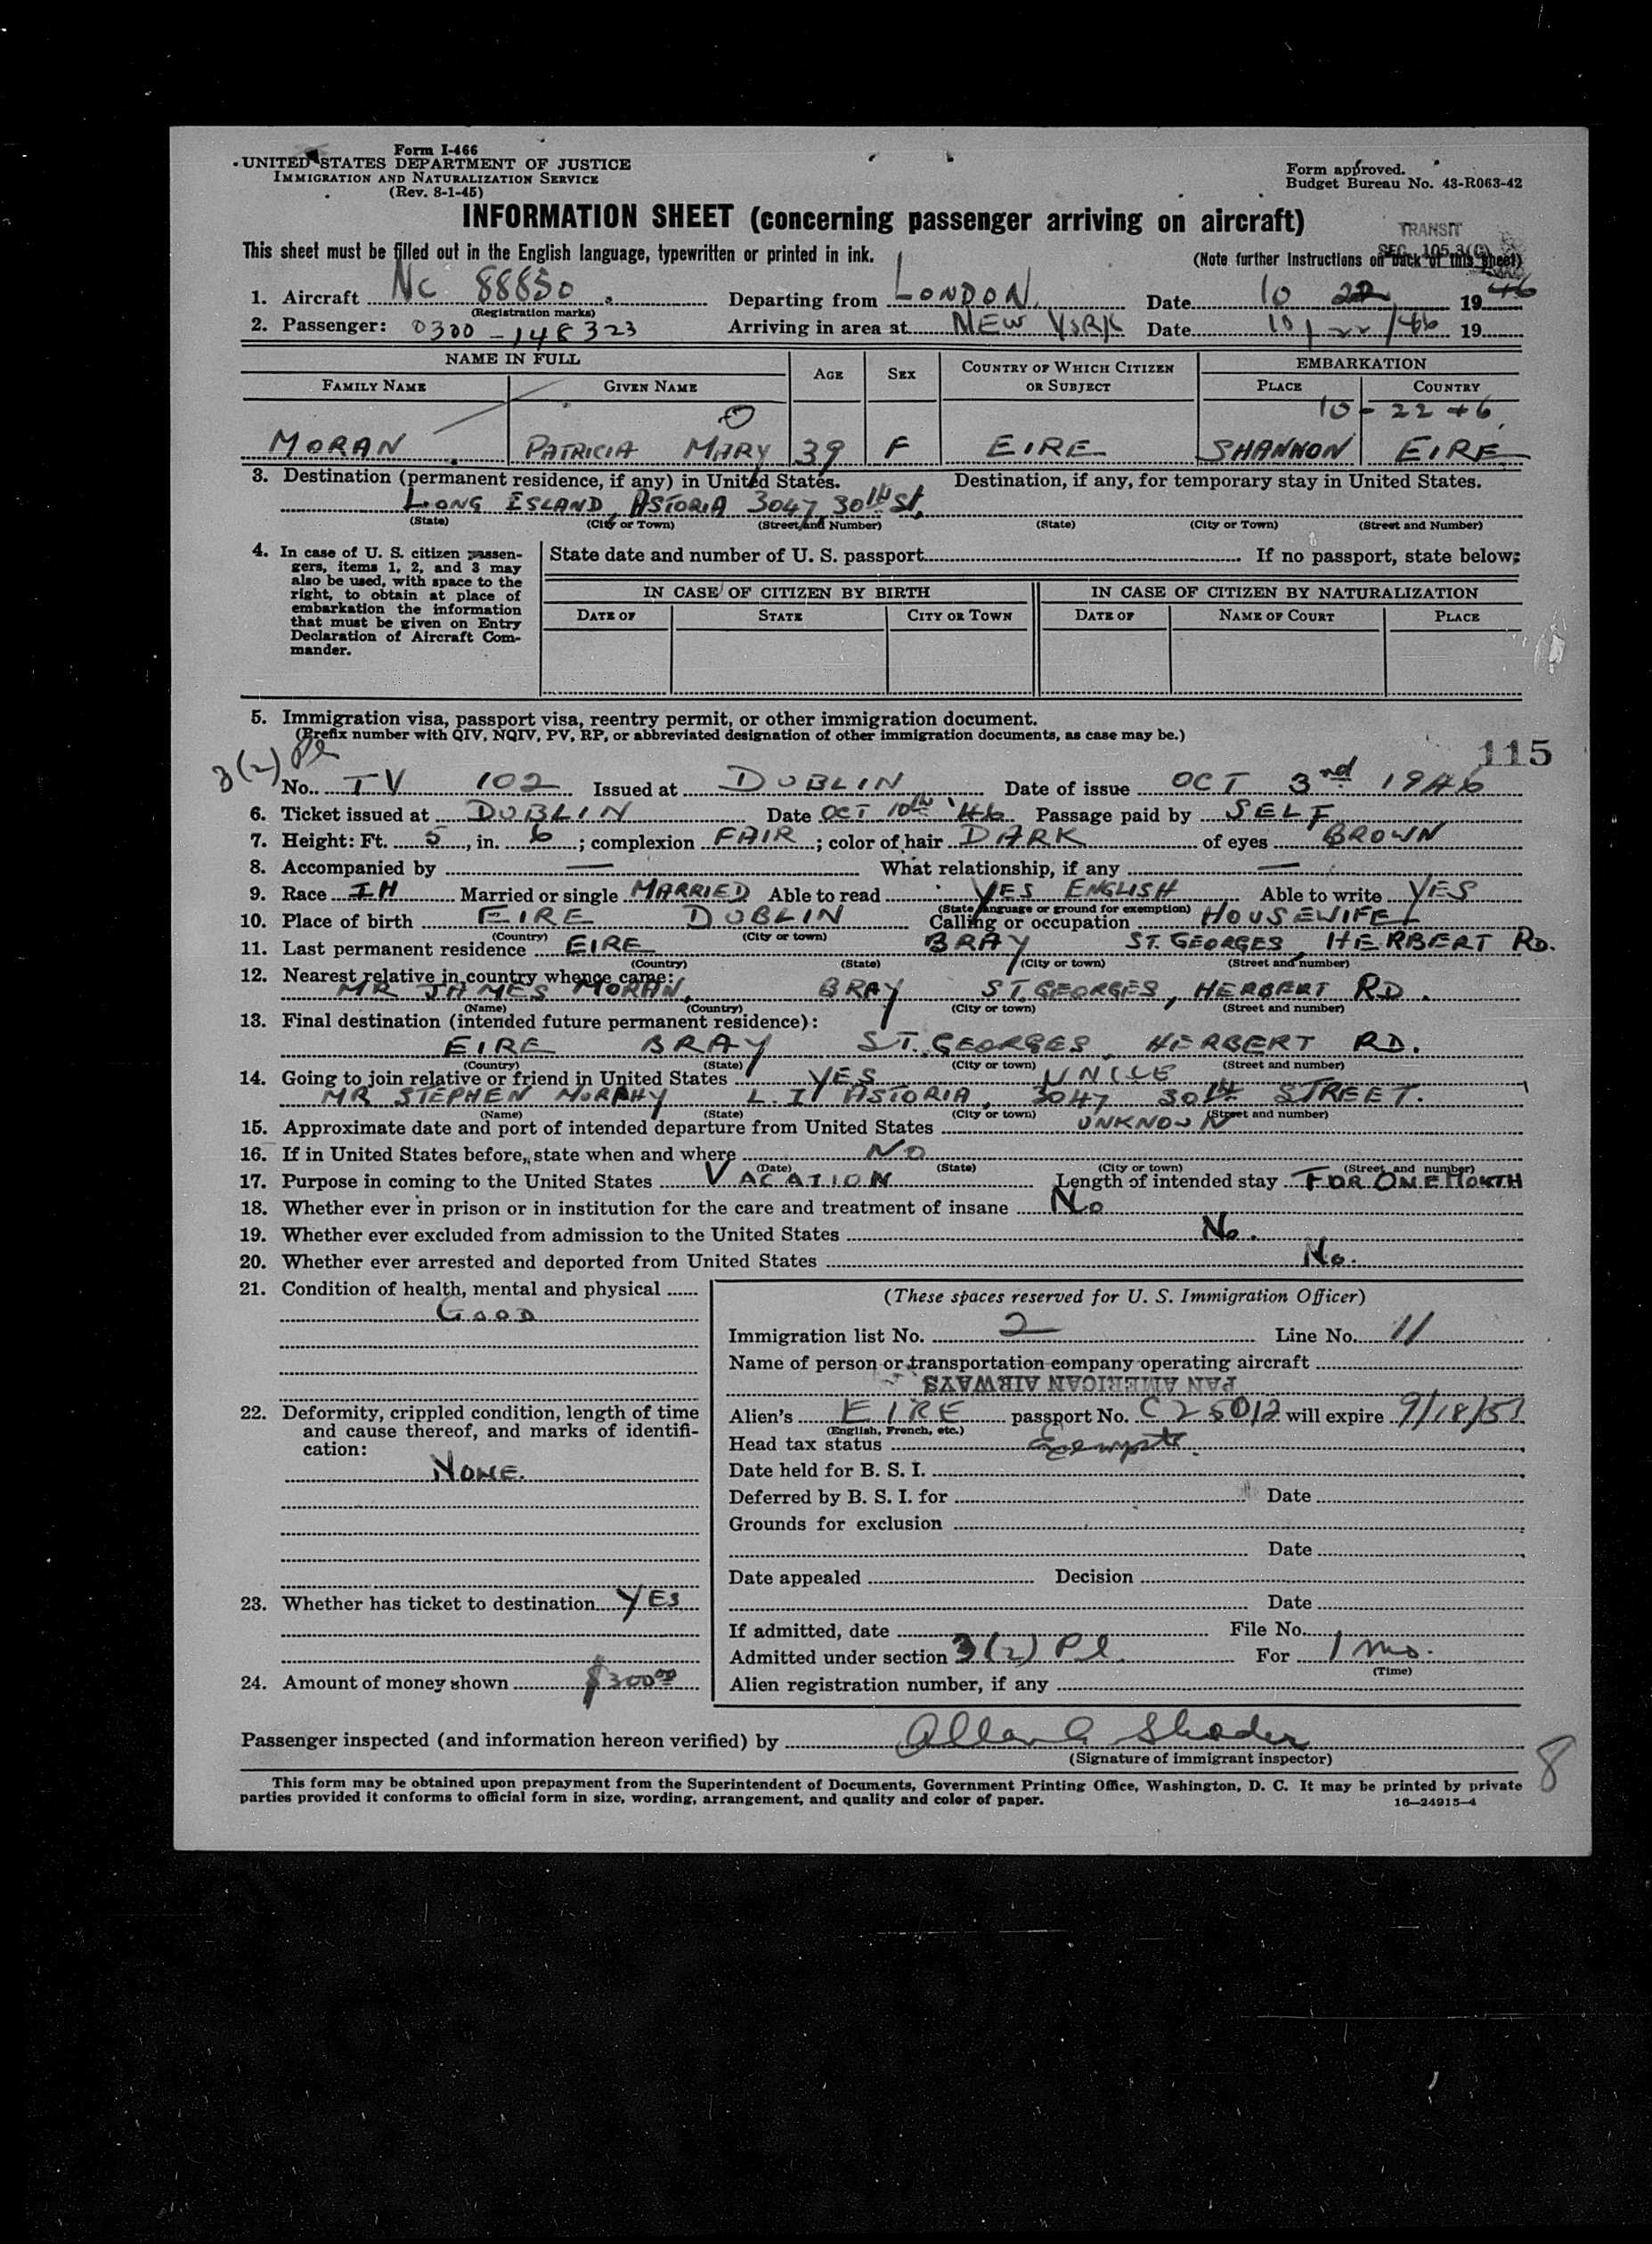 Form I-466
UNITED STATES DEPARTMENT OF JUSTICE
IMMIGRATION AND NATURALIZATION SERVICE
(Rev. 8-1-45)
Form approved.
Budget Bureau No. 43-R063-42
INFORMATION SHEET (concerning passenger arriving on aircraft)
TRANSIT
SEC. 105.3(C)
This sheet must be filled out in the English language, typewritten or printed in ink. (Note further instructions on back of this sheet)
1. Aircraft NC 88850 Departing from LONDON Date 10 22 1946
(Registration marks)
2. Passenger: 0300-148323 Arriving in area at NEW YORK Date 10/22/46 19
NAME IN FULL AGE SEX COUNTRY OF WHICH CITIZEN OR SUBJECT EMBARKATION
FAMILY NAME GIVEN NAME PLACE COUNTRY
10-22 46
MORAN PATRICIA MARY 39 F EIRE SHANNON EIRE
3. Destination (permanent residence, if any) in United States. Destination, if any, for temporary stay in United States.
LONG ISLAND, ASTORIA 3047 30th St.
(State) (City or Town) (Street and Number) (State) (City or Town) (Street and Number)
4. In case of U. S. citizen passengers, items 1, 2, and 3 may also be used, with space to the right, to obtain at place of embarkation the information that must be given on Entry Declaration of Aircraft Commander.
State date and number of U. S. passport If no passport, state below:
IN CASE OF CITIZEN BY BIRTH IN CASE OF CITIZEN BY NATURALIZATION
DATE OF STATE CITY OR TOWN DATE OF NAME OF COURT PLACE
5. Immigration visa, passport visa, reentry permit, or other immigration document.
(Prefix number with QIV, NQIV, PV, RP, or abbreviated designation of other immigration documents, as case may be.)
3(2) Pl
115
No. TV 102 Issued at DUBLIN Date of issue OCT 3rd 1946
6. Ticket issued at DUBLIN Date OCT 10th '46 Passage paid by SELF
7. Height: Ft. 5, in. 6; complexion FAIR; color of hair DARK of eyes BROWN
8. Accompanied by — What relationship, if any —
9. Race IH Married or single MARRIED Able to read YES ENGLISH Able to write YES
(State language or ground for exemption)
10. Place of birth EIRE DUBLIN Calling or occupation HOUSEWIFE
(Country) (City or town)
11. Last permanent residence EIRE BRAY ST. GEORGES, HERBERT RD.
(Country) (State) (City or town) (Street and number)
12. Nearest relative in country whence came:
MR JAMES MORAN, BRAY ST. GEORGES, HERBERT RD.
(Name) (Country) (City or town) (Street and number)
13. Final destination (intended future permanent residence):
EIRE BRAY ST. GEORGES, HERBERT RD.
(Country) (State) (City or town) (Street and number)
14. Going to join relative or friend in United States YES UNCLE
MR STEPHEN MURPHY L. I ASTORIA, 3047 30th STREET.
(Name) (State) (City or town) (Street and number)
15. Approximate date and port of intended departure from United States UNKNOWN
16. If in United States before, state when and where NO
(Date) (State) (City or town) (Street and number)
17. Purpose in coming to the United States VACATION Length of intended stay FOR ONE MONTH
18. Whether ever in prison or in institution for the care and treatment of insane No
19. Whether ever excluded from admission to the United States No.
20. Whether ever arrested and deported from United States No.
21. Condition of health, mental and physical
GOOD
22. Deformity, crippled condition, length of time and cause thereof, and marks of identification:
NONE.
23. Whether has ticket to destination YES
24. Amount of money shown $300.00
(These spaces reserved for U. S. Immigration Officer)
Immigration list No. 2 Line No. 11
Name of person or transportation company operating aircraft
PAN AMERICAN AIRWAYS
Alien's EIRE passport No. C 25012 will expire 9/18/51
(English, French, etc.)
Head tax status Exempt.
Date held for B. S. I.
Deferred by B. S. I. for Date
Grounds for exclusion
Date
Date appealed Decision
Date
If admitted, date File No.
Admitted under section 3(2) Pl. For 1 mo.
(Time)
Alien registration number, if any
Passenger inspected (and information hereon verified) by Allan G Shader
(Signature of immigrant inspector)
8
This form may be obtained upon prepayment from the Superintendent of Documents, Government Printing Office, Washington, D. C. It may be printed by private
parties provided it conforms to official form in size, wording, arrangement, and quality and color of paper. 16—24915-4